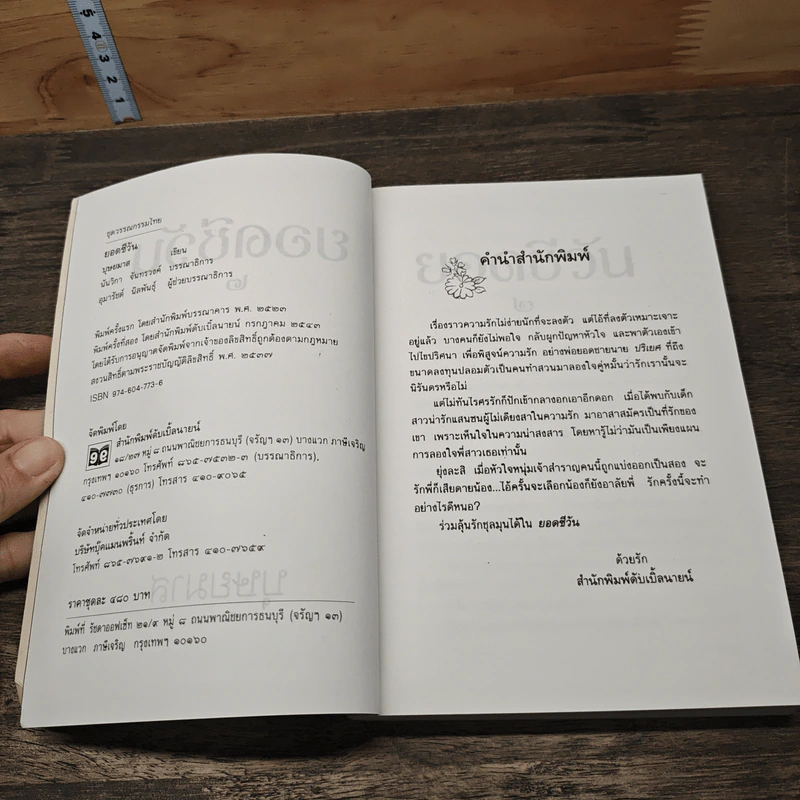 5
4
3
2
1
ชุดวรรณกรรมไทย
ยอดชีวัน
บุษยมาส เขียน
นันวิภา จันทรวงศ์ บรรณาธิการ
อุมารัชต์ นิลพันธุ์ ผู้ช่วยบรรณาธิการ
พิมพ์ครั้งแรก โดยสำนักพิมพ์บรรณาคาร พ.ศ. ๒๕๒๓
พิมพ์ครั้งที่สอง โดยสำนักพิมพ์ดับเบิ้ลนายน์ กรกฎาคม ๒๕๔๓
โดยได้รับการอนุญาตจัดพิมพ์จากเจ้าของลิขสิทธิ์ถูกต้องตามกฎหมาย
สงวนสิทธิ์ตามพระราชบัญญัติลิขสิทธิ์ พ.ศ. ๒๕๓๗
ISBN 974-604-773-6
จัดพิมพ์โดย
สำนักพิมพ์ดับเบิ้ลนายน์
๑๘/๒๗ หมู่ ๘ ถนนพาณิชยการธนบุรี (จรัญฯ ๑๓) บางแวก ภาษีเจริญ
กรุงเทพฯ ๑๐๑๖๐ โทรศัพท์ ๘๖๕-๗๕๓๒-๓ (บรรณาธิการ).
๔๑๐-๗๗๓๐ (ธุรการ) โทรสาร ๔๑๐-๙๐๖๕
จัดจำหน่ายทั่วประเทศโดย
บริษัทบุ๊คแมนพริ้นท์ จำกัด
โทรศัพท์ ๘๖๕-๗๖๙๑-๒ โทรสาร ๔๑๐-๗๖๕๙
ราคาชุดละ ๔๘๐ บาท
พิมพ์ที่ รัชดาออฟเซ็ท ๒๑/๙ หมู่ ๘ ถนนพาณิชยการธนบุรี (จรัญฯ ๑๓)
บางแวก ภาษีเจริญ กรุงเทพฯ ๑๐๑๖๐
คำนำสำนักพิมพ์
เรื่องราวความรักไม่ง่ายนักที่จะลงตัว แต่ไอ้ที่ลงตัวเหมาะเจาะ
อยู่แล้ว บางคนก็ยังไม่พอใจ กลับผูกปัญหาหัวใจ และพาตัวเองเข้า
ไปไขปริศนา เพื่อพิสูจน์ความรัก อย่างพ่อยอดชายนาย ปริเยศ ที่ถึง
ขนาดลงทุนปลอมตัวเป็นคนทำสวนมาลองใจคู่หมั้นว่ารักเรานั้นจะ
นิรันดรหรือไม่
แต่ไม่ทันไรศรรักก็ปักเข้ากลางอกเอาอีกดอก เมื่อได้พบกับเด็ก
สาวน่ารักแสนซนผู้ไม่เดียงสาในความรัก มาอาสาสมัครเป็นที่รักของ
เขา เพราะเห็นใจในความน่าสงสาร โดยหารู้ไม่ว่ามันเป็นเพียงแผน
การลองใจพี่สาวเธอเท่านั้น
ยุ่งละสิ เมื่อหัวใจหนุ่มเจ้าสำราญคนนี้ถูกแบ่งออกเป็นสอง จะ
รักพี่ก็เสียดายน้อง...ไอ้ครั้นจะเลือกน้องก็ยังอาลัยพี่ รักครั้งนี้จะทำ
อย่างไรดีหนอ?
ร่วมลุ้นรักชุลมุนได้ใน ยอดชีวัน
ด้วยรัก
สำนักพิมพ์ดับเบิ้ลนายน์